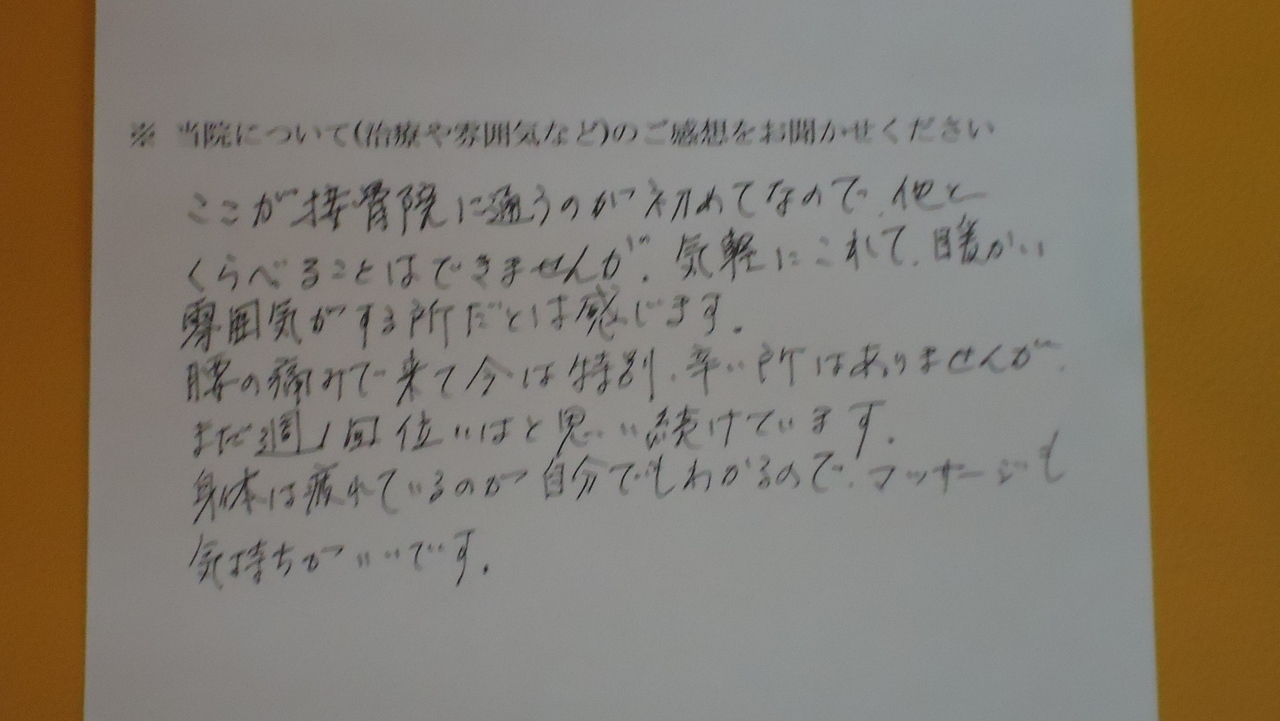 ※ 当院について(治療や雰囲気など)のご感想をお聞かせください
ここが接骨院に通うのが初めてなので、他と
くらべることはできませんが、気軽にこれて、暖かい
雰囲気がする所だとは感じます。
腰の痛みで来て今は特別、辛い所はありませんが、
まだ週1回位いはと思い続けています。
身体は疲れているのが自分でもわかるので、マッサージも
気持ちがいいです。